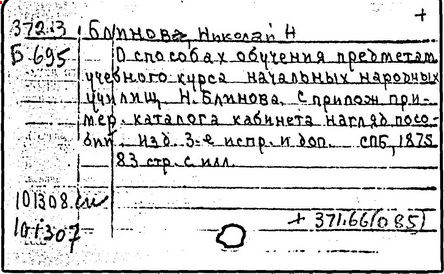 +
372.3 Блинова, Николай Н
Б.695 О способах обучения предметам
учебного курса начальных народных
училищ, Н. Блинова. С прилож. при-
мер. каталога кабинета нагляд. посо-
бий. Изд. 3-е испр. и доп. СПБ, 1875
83 стр. с илл.
101308
101307 + 371.66(085)